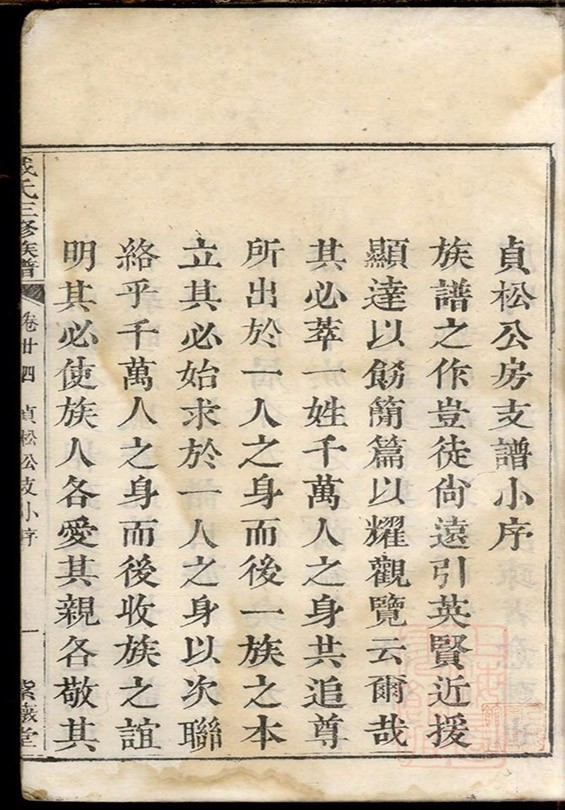 貞松公房支譜小序
族譜之作豈徒尙遠引英賢近援
顯達以餙簡篇以耀觀覽云爾哉
其必萃一姓千萬人之身共追尊
所出於一人之身而後一族之本
立其必始求於一人之身以次聯
絡乎千萬人之身而後收族之誼
明其必使族人各愛其親各敬其
氏三修族譜 卷廿四 貞松公支小序 一 堂